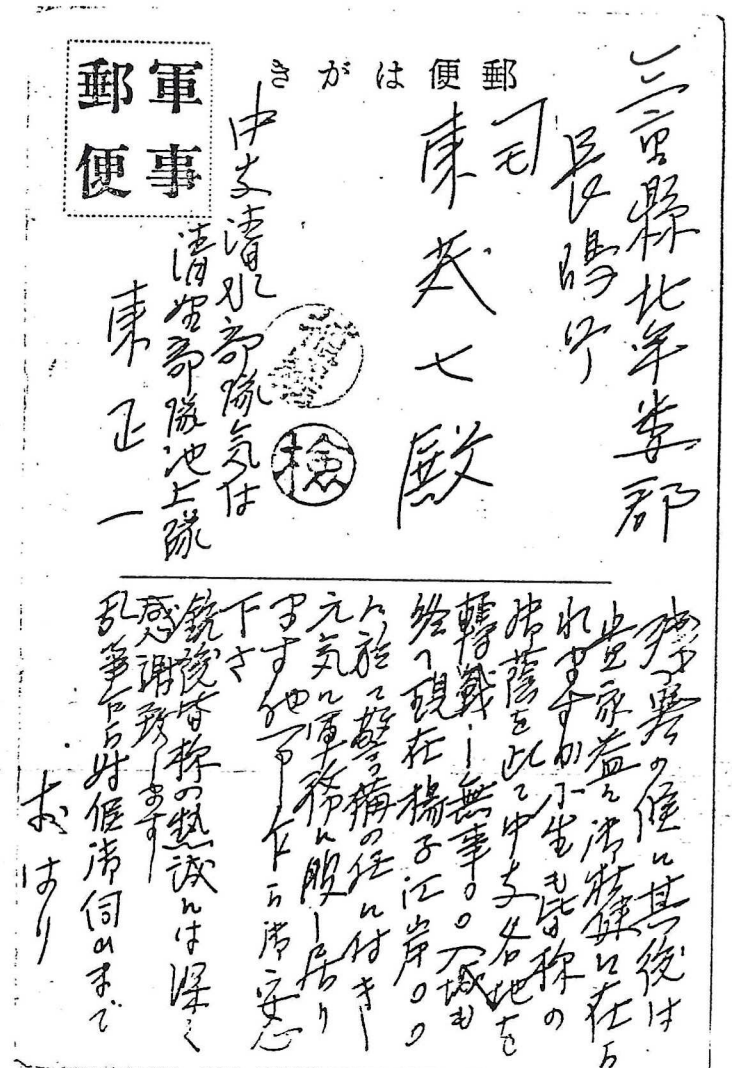 郵便はがき
軍事
郵便
三重縣北牟婁郡
長嶋町
東茂七殿
中支清水部隊気付
部隊池上隊
東正一
検
残寒の候に其後は
貴家益々御壮健に在ら
れますか小生も皆様の
御蔭を以て中支各地を
轉戦し無事○○入城も
終へ現在揚子江岸○○
に於て警備の任に付き
元気に軍務に服し居り
ます他事し乍ら御安心
下さ
銃後皆様の熱誠には深く
感謝致します
乱筆乍ら時候御伺ひまで
おはり